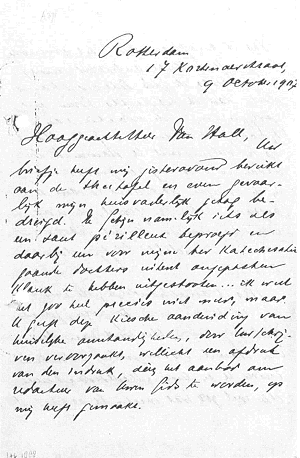 Rotterdam
17 Kortenaerstraat,
9 October 1907
Hooggeachte Heer Van Hall,
Uw
briefje heeft mij gisteravond bereikt
aan de theetafel en even gevaar-
lijk mijn huisvaderlijk gezag be-
dreigd. Ik schijn namelijk iets als
een saut périlleux beproefd en
daarbij een voor mijne ter Katechisatie
gaande dochters uiterst ongepasten
klank te hebben uitgestooten... ik weet
het zoo heel precies niet meer, maar
ik geef deze kiesche aanduiding van
huiselijke omstandigheden, door Uw schrij-
ven veroorzaakt, wellicht een afdruk
van den indruk, dien het aanbod om
redacteur van Uwen Gids te worden, op
mij heeft gemaakt.